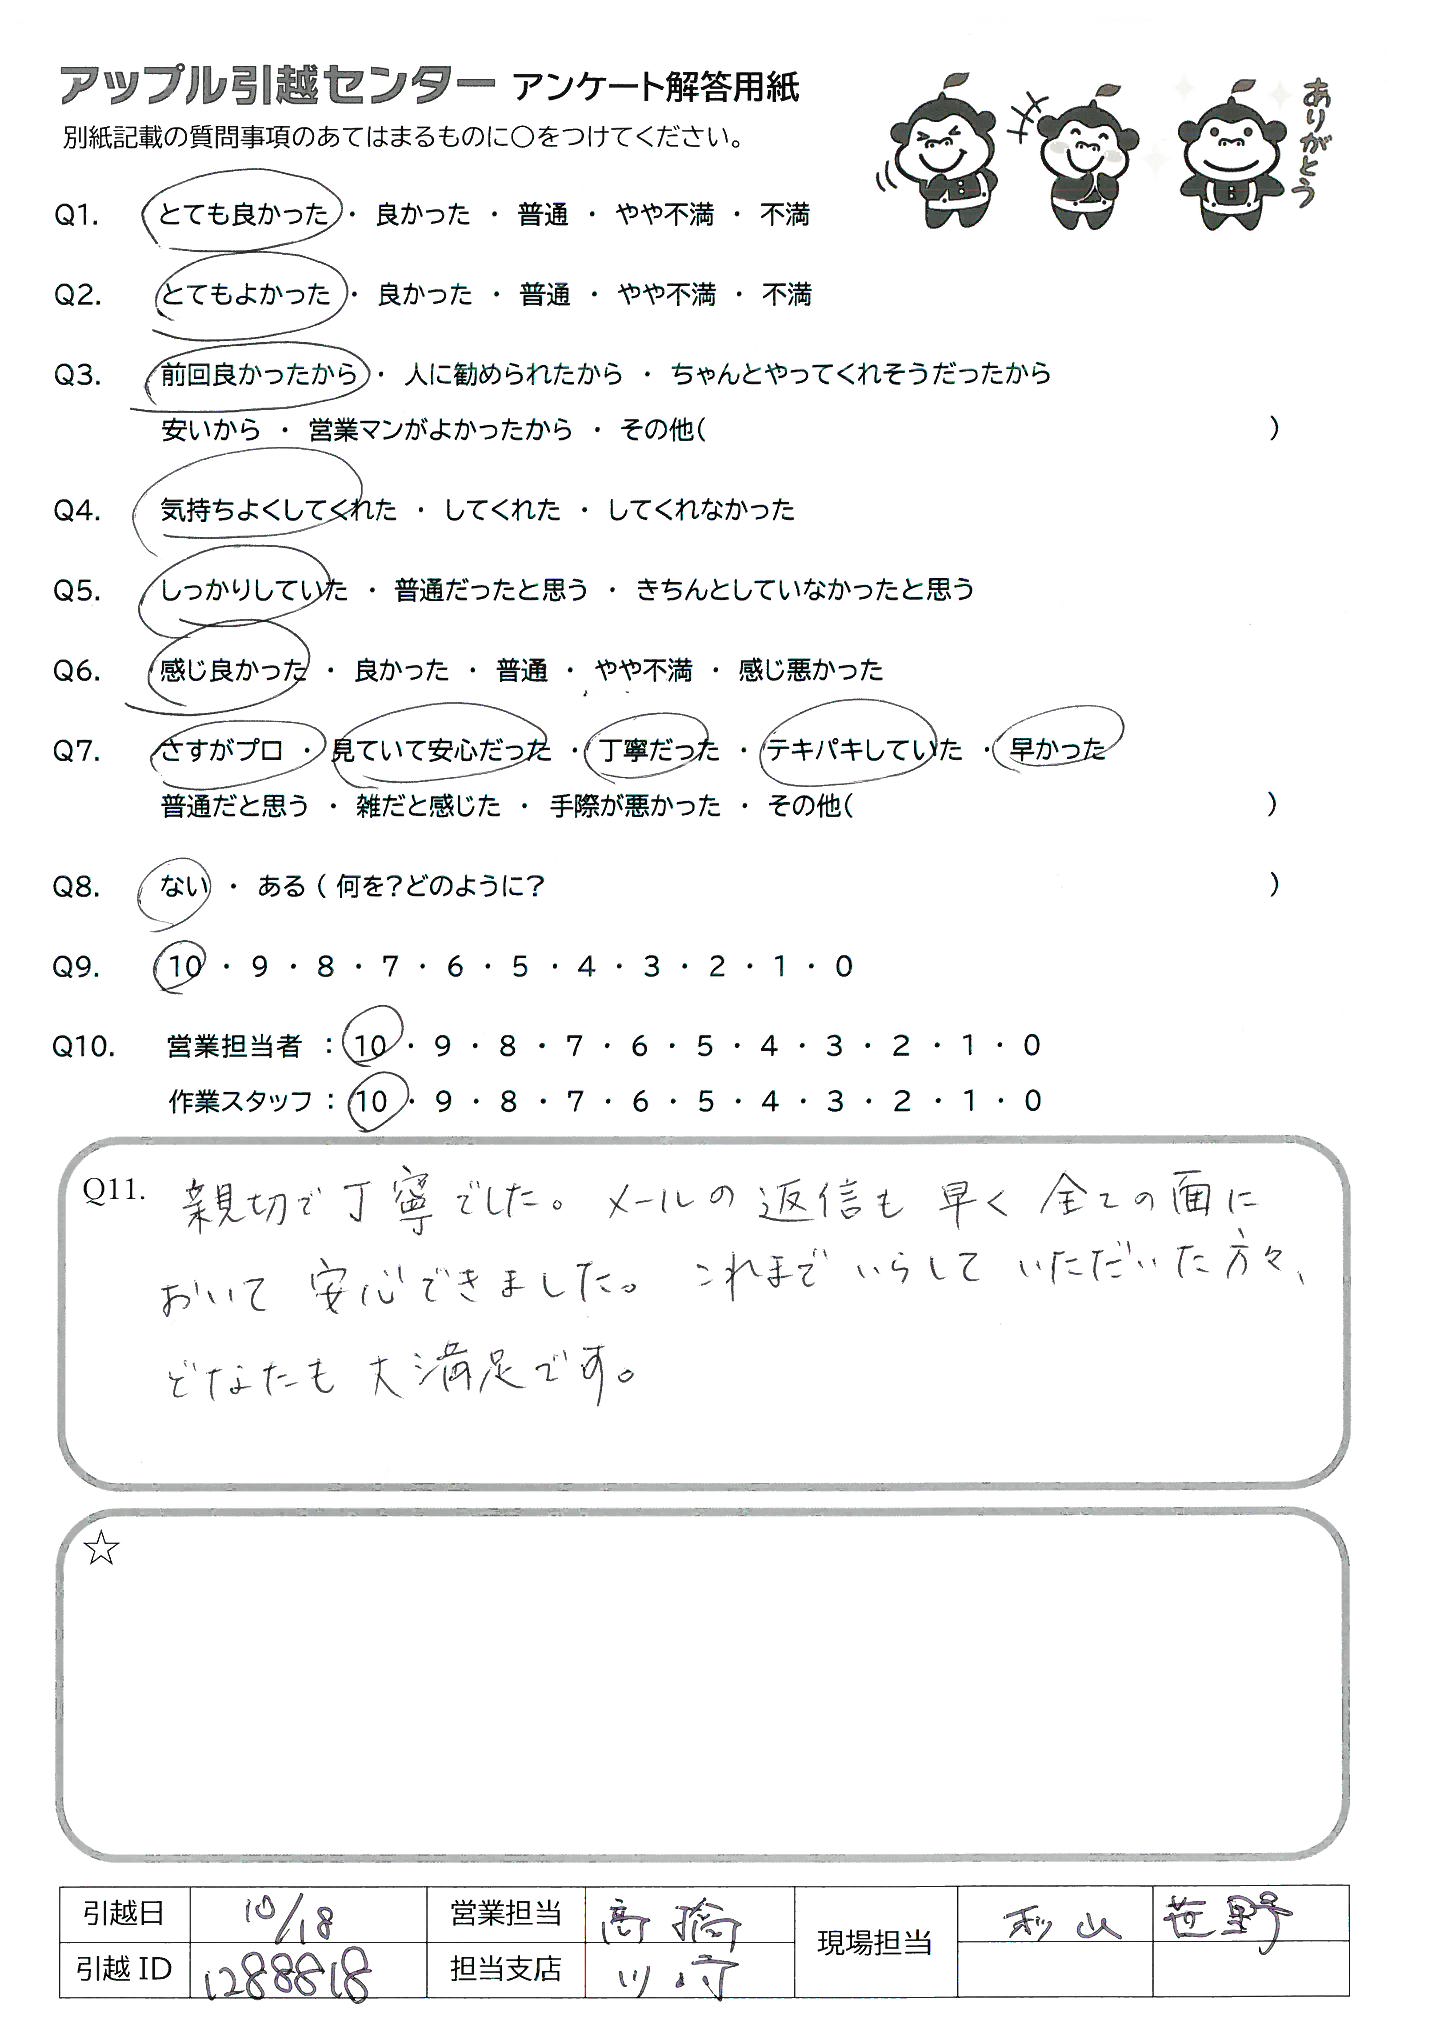 アップル引越センター アンケート解答用紙
別紙記載の質問事項のあてはまるものに○をつけてください。
ありがとう
Q1. とても良かった ・ 良かった ・ 普通 ・ やや不満 ・ 不満
Q2. とてもよかった ・ 良かった ・ 普通 ・ やや不満 ・ 不満
Q3. 前回良かったから ・ 人に勧められたから ・ ちゃんとやってくれそうだったから
安いから ・ 営業マンがよかったから ・ その他( )
Q4. 気持ちよくしてくれた ・ してくれた ・ してくれなかった
Q5. しっかりしていた ・ 普通だったと思う ・ きちんとしていなかったと思う
Q6. 感じ良かった ・ 良かった ・ 普通 ・ やや不満 ・ 感じ悪かった
Q7. さすがプロ ・ 見ていて安心だった ・ 丁寧だった ・ テキパキしていた ・ 早かった
普通だと思う ・ 雑だと感じた ・ 手際が悪かった ・ その他( )
Q8. ない ・ ある ( 何を?どのように? )
Q9. 10 ・ 9 ・ 8 ・ 7 ・ 6 ・ 5 ・ 4 ・ 3 ・ 2 ・ 1 ・ 0
Q10. 営業担当者 : 10 ・ 9 ・ 8 ・ 7 ・ 6 ・ 5 ・ 4 ・ 3 ・ 2 ・ 1 ・ 0
作業スタッフ : 10 ・ 9 ・ 8 ・ 7 ・ 6 ・ 5 ・ 4 ・ 3 ・ 2 ・ 1 ・ 0
Q11. 親切で丁寧でした。メールの返信も早く全ての面に
おいて安心できました。これまでいらしていただいた方々、
どなたも大満足です。
☆
引越日 10/18 営業担当 高橋 現場担当 杉山 笹野
引越ID 1288818 担当支店 川崎